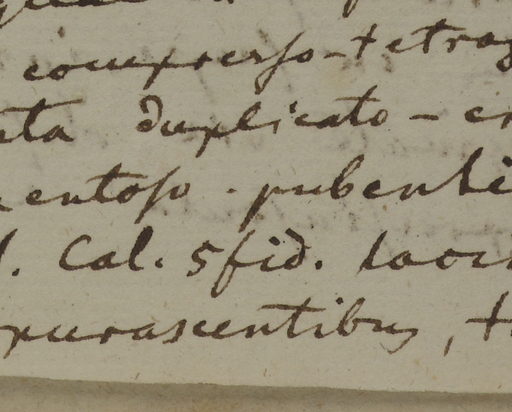 compresso-tetrag
ta duplicato-cr
entoso-pubenti
. Cal. 5fid. laci
purascentibus, t